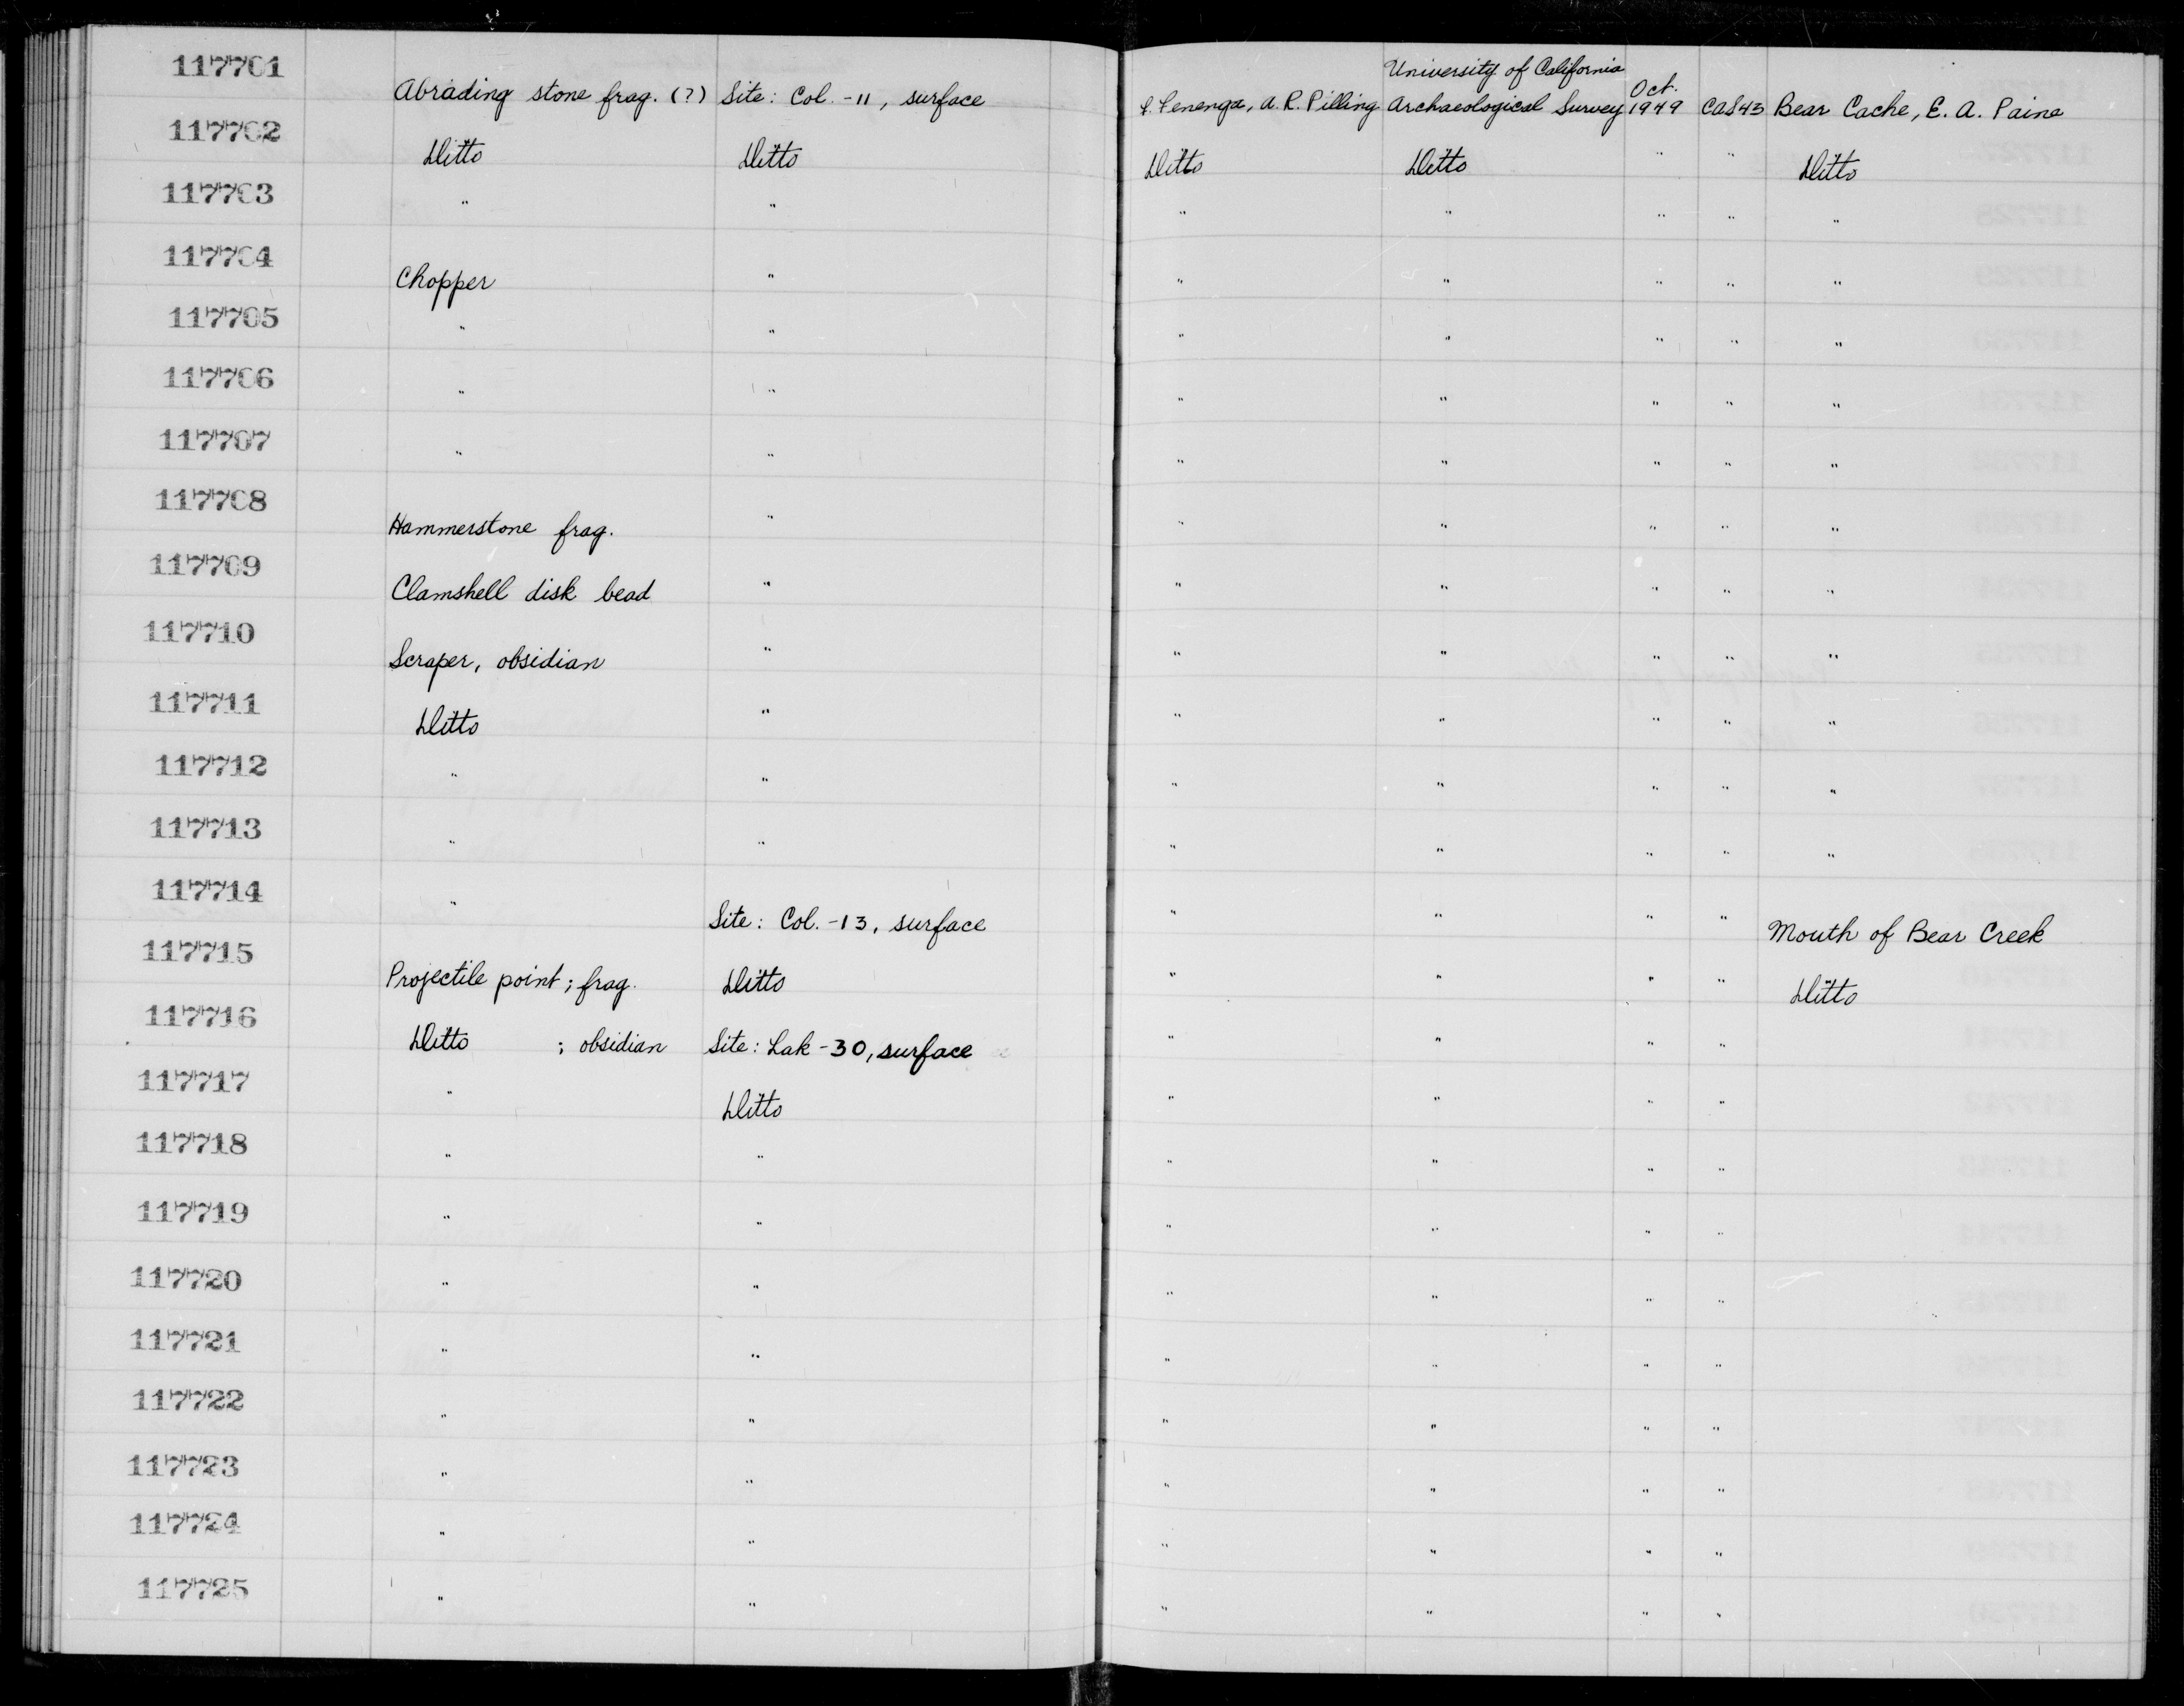 117701 Abrading stone frag. (?) Site: Col.-11, surface Fenenga, A. R. Pilling University of California Archaeological Survey Oct. 1949 CAS43 Bear Cache, E. A. Paine
117702 Ditto Ditto Ditto Ditto " " Ditto
117703 " " " " " " "
117704 Chopper " " " " " "
117705 " " " " " " "
117706 " " " " " " "
117707 " " " " " " "
117708 Hammerstone frag. " " " " " "
117709 Clamshell disk bead " " " " " "
117710 Scraper, obsidian " " " " " "
117711 Ditto " " " " " "
117712 " " " " " " "
117713 " " " " " " "
117714 " Site: Col.-13, surface " " " " Mouth of Bear Creek
117715 Projectile point; frag. Ditto " " " " Ditto
117716 Ditto ; obsidian Site: Lak-30, surface " " " "
117717 " Ditto " " " "
117718 " " " " " "
117719 " " " " " "
117720 " " " " " "
117721 " " " " " "
117722 " " " " " "
117723 " " " " " "
117724 " " " " " "
117725 " " " " " "